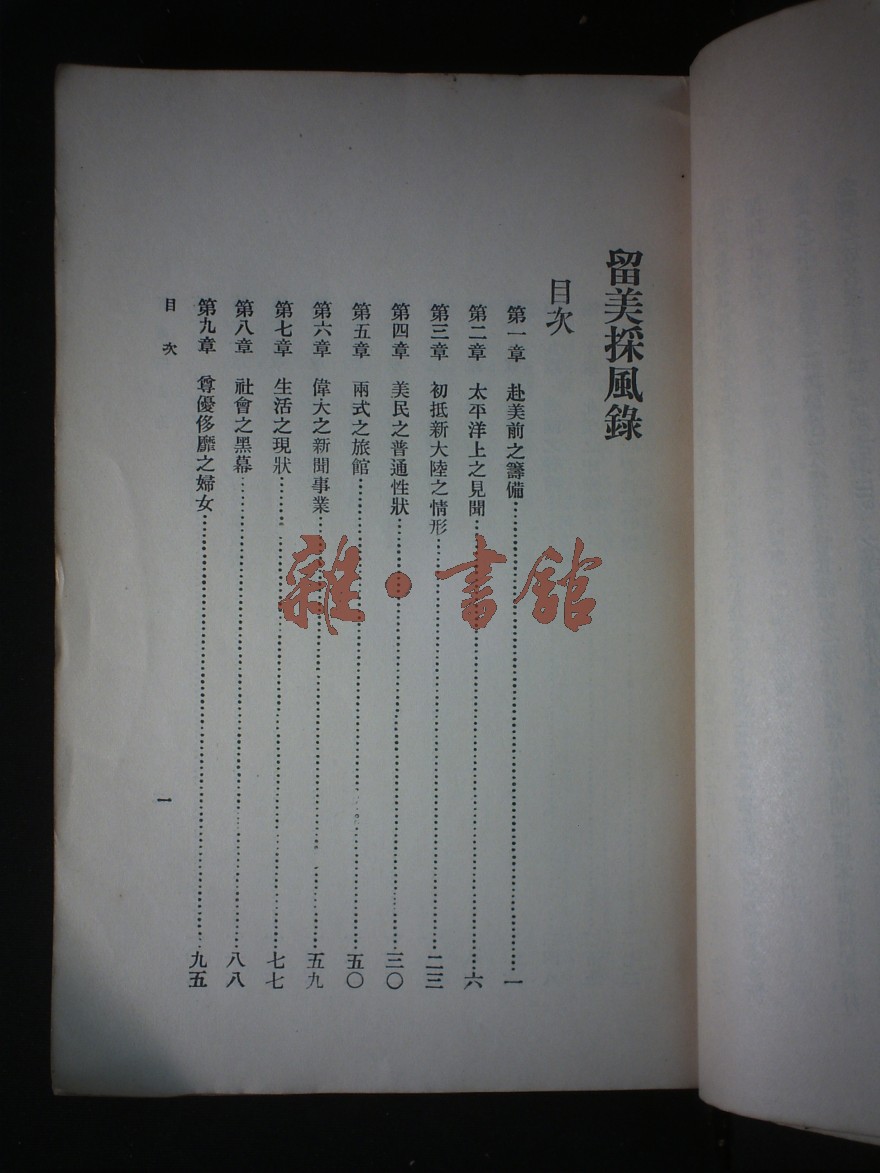 留美採風錄
目次
第一章　赴美前之籌備…………一
第二章　太平洋上之見聞…………六
第三章　初抵新大陸之情形…………二三
第四章　美民之普通性狀…………三〇
第五章　兩式之旅館…………五〇
第六章　偉大之新聞事業…………五九
第七章　生活之現狀…………七七
第八章　社會之黑幕…………八八
第九章　尊優侈靡之婦女…………九五
目次
一
雜·書館